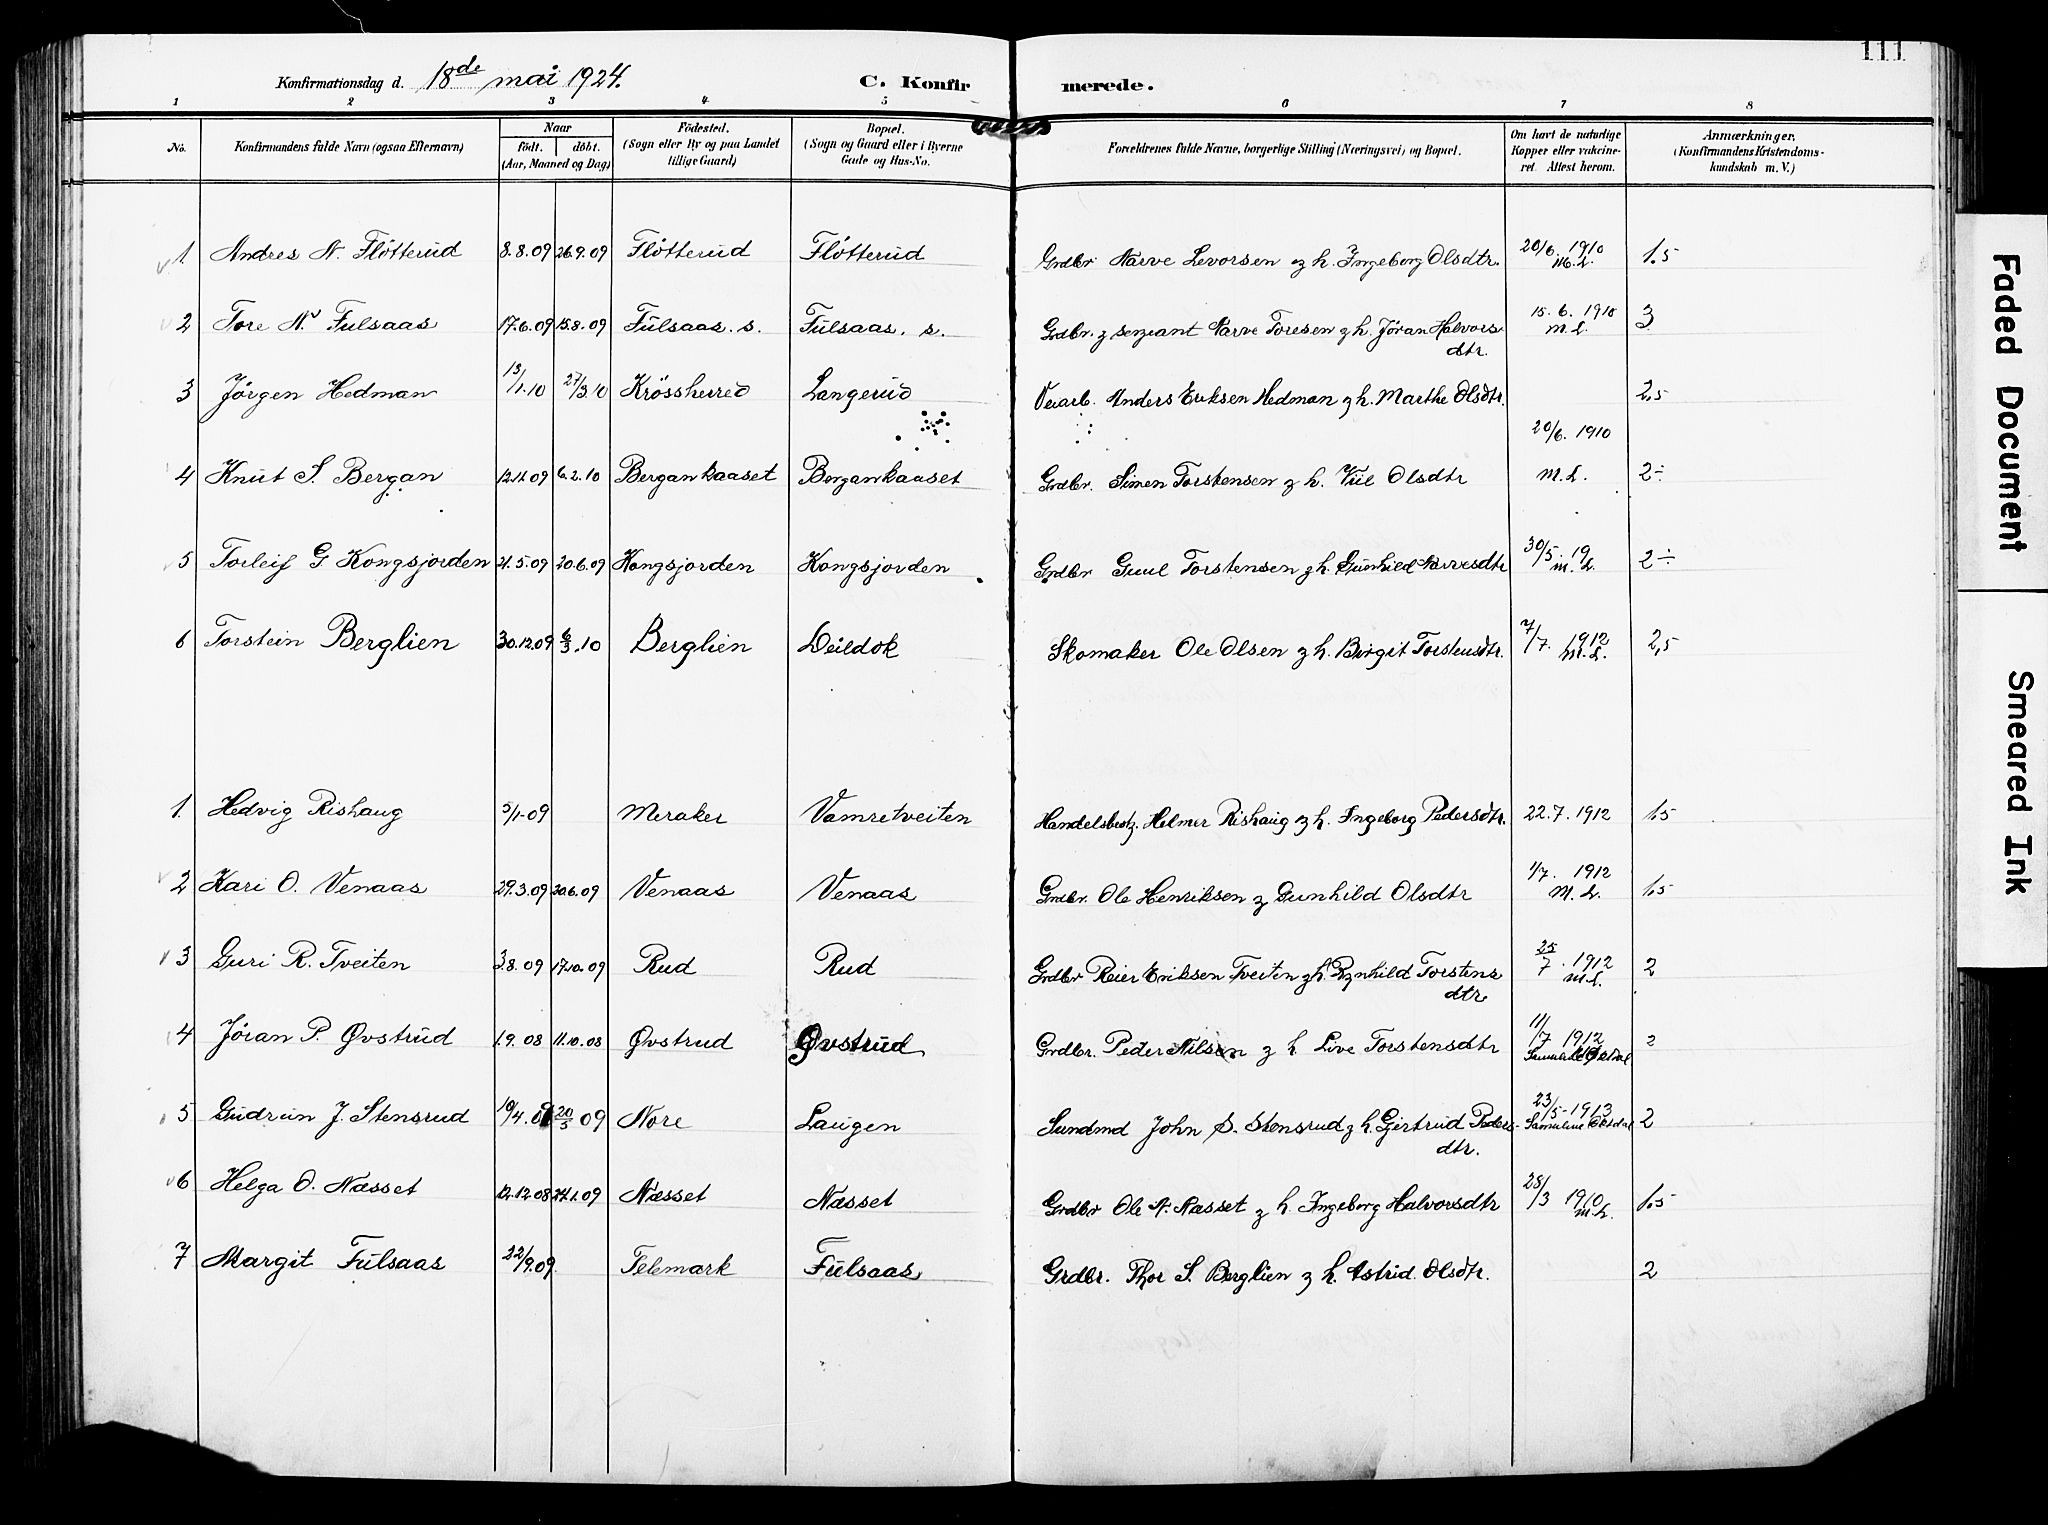 111
Konfirmationsdag d. 18de mai 1924.
C. Konfirmerede.
1 2 3 4 5 6 7 8
No. Konfirmandens fulde Navn (ogsaa Efternavn) Naar født. døbt. (Aar, Maaned og Dag) Födested. (Sogn eller By og paa Landet tillige Gaard) Bopæl. (Sogn og Gaard eller i Byerne Gade og Hus-No. Forældrenes fulde Navne, borgerlige Stilling (Næringsvei) og Bopæl. Om havt de naturlige Kopper eller vakcineret. Attest herom. Anmærkninger. (Konfirmandens Kristendomskundskab m. V.)
1 Andres N. Fløtterud 8.8.09 26.9.09 Fløtterud Fløtterud Grdbr Narve Levorsen og h. Ingeborg Olsdtr. 20/6. 1910 M.L. 1.5
2 Tore N. Fulsaas 17.6.09 15.8.09 Fulsaas. s. Fulsaas. s. Grdbr. og sergeant Narve Toresen og h. Jøran Halvorsdtr. 15. 6. 1910 M.L. 3
3 Jørgen Hedman 13/1.10 27/3.10 Krössherred Langerud Veiarb. Anders Eriksen Hedman og h. Marthe Olsdtr. 2,5
4 Knut S. Bergan 12.11.09 6.2.10 Bergankaaset Bergankaaset Grdbr. Simen Torstensen og h. Viil Olsdtr 20/6. 1910 M.L. 2÷
5 Torleif G Kongsjorden 21.5.09 20.6.09 Kongsjorden Kongsjorden Grdbr Guul Torstensen og h. Gunhild Narvesdtr 30/5. 19 M.L. 2÷
6 Torstein Berglien 30.12.09 6/3.10 Berglien Deildok Skomaker Ole Olsen og h. Birgit Torstensdtr. 7/7. 1912 M.L. 2,5
1. Hedvig Rishaug 5/1-09 Meraker Vamretveiten Handelsbest. Helmer Rishaug og h. Ingeborg Pedersdtr. 22.7.1912 1.5
2 Kari O. Venaas 29.3.09 20.6.09 Venaas Venaas Grdbr. Ole Henriksen og Gunhild Olsdtr 1/7. 1912 M.L. 1.5
3 Guri R. Tveiten 3.8.09 17.10.09 Rud Rud Grdbr Reier Eriksen Tveiten og h. Rgnhild Torstensdtr. 25/7. 1912 M.L. 2
4 Jøran P. Øvstrud 1.9.08 11.10.08 Øvstrud Øvstrud Grdbr. Peder Nilsen og h. Live Torstensdtr 11/7 1912 2
5 Gudrun J. Stensrud 10/4.09 20/5 09 Nore Laugen Sundmd John S. Stensrud og h. Gjertrud Pedersdtr. 23/5-1913 2
6 Helga O. Næsset 12.12.08 24.1.09 Næsset Næsset Grdbr Ole N. Næsset og h. Ingeborg Halvorsdtr 28/3 1910 M.L. 1.5
7 Margit Fulsaas 22/9.09 Telemark Fulsaas Grdbr. Thor S. Berglien og h. Astrid Olsdtr. 2
Faded Document
Smeared Ink